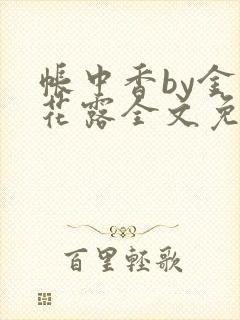 帐中香by金
花露全文免
百里轻歌